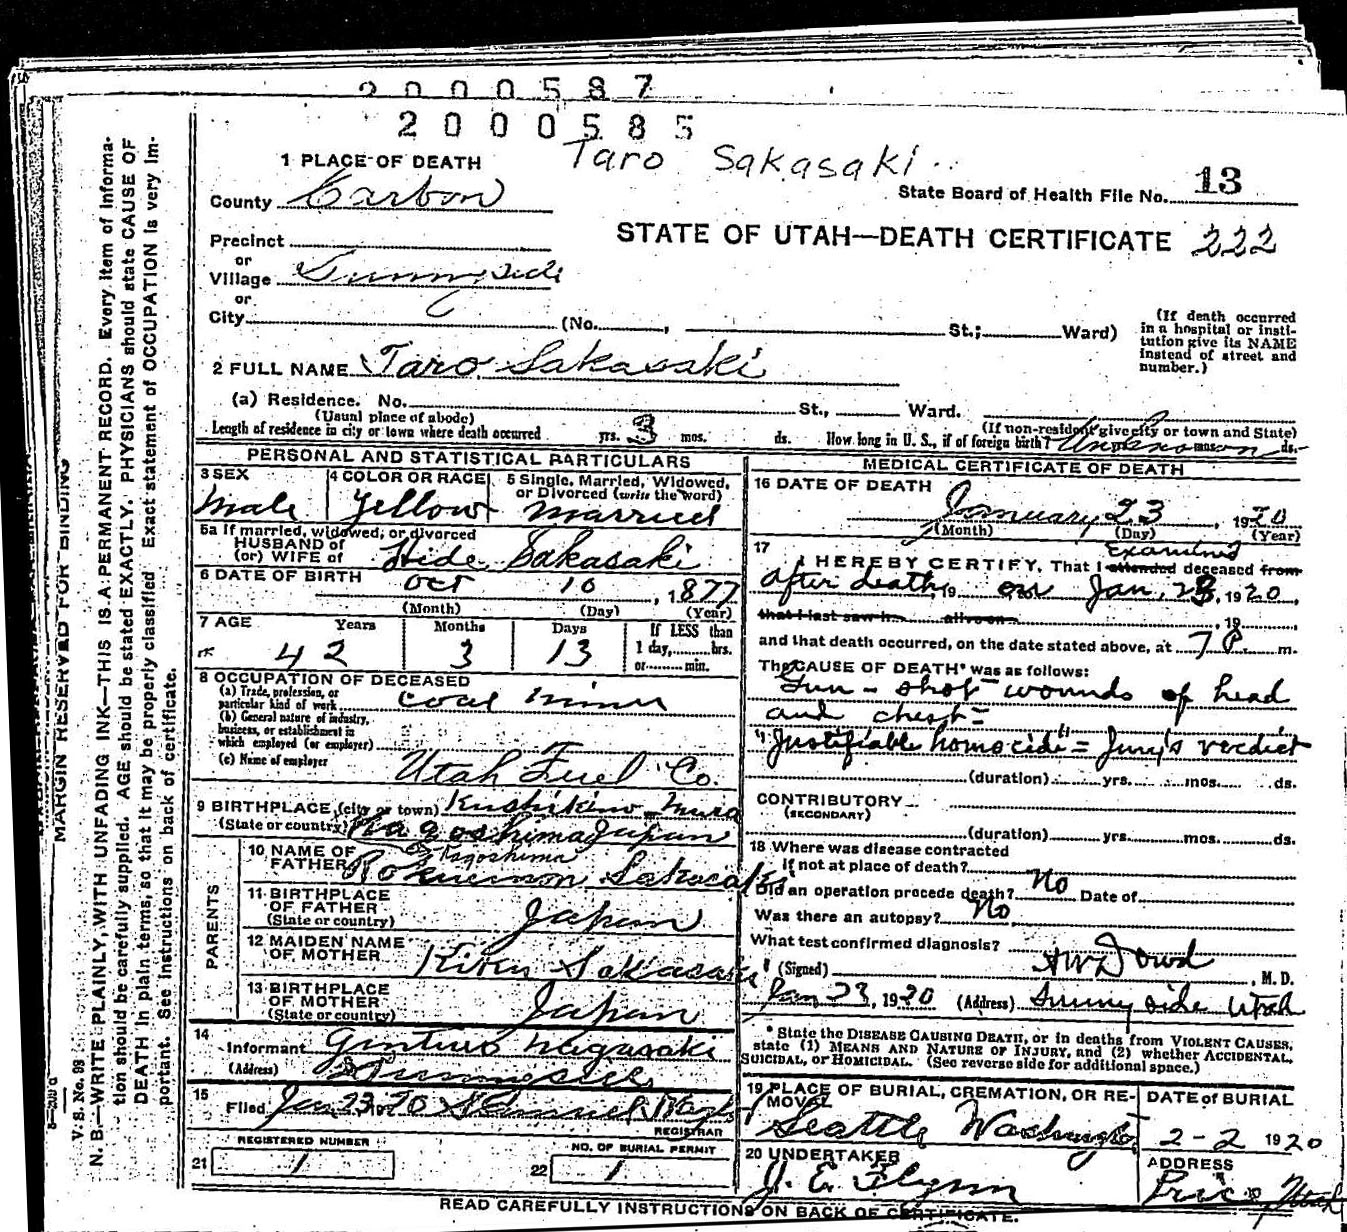 2000587
2000585
Taro Sakasaki
1 PLACE OF DEATH
State Board of Health File No. 13
County Carbon
STATE OF UTAH—DEATH CERTIFICATE 222
Precinct
or
Village Sunnyside
or
City (No. , St.; Ward)
(If death occurred in a hospital or insti-
tution give its NAME
instead of street and
number.)
2 FULL NAME Taro Sakasaki
(a) Residence. No. St., Ward.
(Usual place of abode) (If non-resident give city or town and State)
Length of residence in city or town where death occurred yrs. 3 mos. ds. How long in U. S., if of foreign birth? Unknown ds.
PERSONAL AND STATISTICAL PARTICULARS
3 SEX Male
4 COLOR OR RACE Yellow
5 Single, Married, Widowed,
or Divorced (write the word)
Married
5a If married, widowed, or divorced
HUSBAND of
(or) WIFE of Hide Sakasaki
6 DATE OF BIRTH Oct 10, 1877
(Month) (Day) (Year)
7 AGE Years Months Days If LESS than
1 day, hrs.
or min.
42 3 13
8 OCCUPATION OF DECEASED
(a) Trade, profession, or
particular kind of work Coal miner
(b) General nature of industry,
business, or establishment in
which employed (or employer)
(c) Name of employer Utah Fuel Co.
9 BIRTHPLACE (city or town) Kushikino Mura
(State or country) Kagoshima Japan
Kagoshima
10 NAME OF
FATHER
PARENTS
11 BIRTHPLACE
OF FATHER
(State or country) Japan
12 MAIDEN NAME
OF MOTHER
13 BIRTHPLACE
OF MOTHER
(State or country) Japan
14
Informant Nagasaki
(Address) Sunnyside
15
Filed Jan 23 1920
REGISTRAR
REGISTERED NUMBER
21 1
NO. OF BURIAL PERMIT
22 1
MEDICAL CERTIFICATE OF DEATH
16 DATE OF DEATH
January 23, 1920
(Month) (Day) (Year)
17
Examined
I HEREBY CERTIFY, That I attended deceased from
after death, 19 on Jan. 23, 1920,
that I last saw h alive on , 19
and that death occurred, on the date stated above, at 7 P. m.
The CAUSE OF DEATH* was as follows:
Gun-shot wounds of head
and chest =
"Justifiable homocide" = Jury's verdict
(duration) yrs. mos. ds.
CONTRIBUTORY
(SECONDARY)
(duration) yrs. mos. ds.
18 Where was disease contracted
if not at place of death?
Did an operation precede death? No Date of
Was there an autopsy? No
What test confirmed diagnosis?
(Signed) Dowd, M. D.
Jan 23, 1920 (Address) Sunnyside Utah
* State the DISEASE CAUSING DEATH, or in deaths from VIOLENT CAUSES,
state (1) MEANS AND NATURE OF INJURY, and (2) whether ACCIDENTAL,
SUICIDAL, or HOMICIDAL. (See reverse side for additional space.)
19 PLACE OF BURIAL, CREMATION, OR RE-
MOVAL
Seattle Washington
DATE of BURIAL
2-2 1920
20 UNDERTAKER
J. E. Flynn
ADDRESS
Price Utah
READ CAREFULLY INSTRUCTIONS ON BACK OF CERTIFICATE.
MARGIN RESERVED FOR BINDING
V. S. No. 98
N. B.—WRITE PLAINLY, WITH UNFADING INK—THIS IS A PERMANENT RECORD. Every item of Informa-
tion should be carefully supplied. AGE should be stated EXACTLY. PHYSICIANS should state CAUSE OF
DEATH in plain terms, so that it may be properly classified. Exact statement of OCCUPATION is very im-
portant. See instructions on back of certificate.